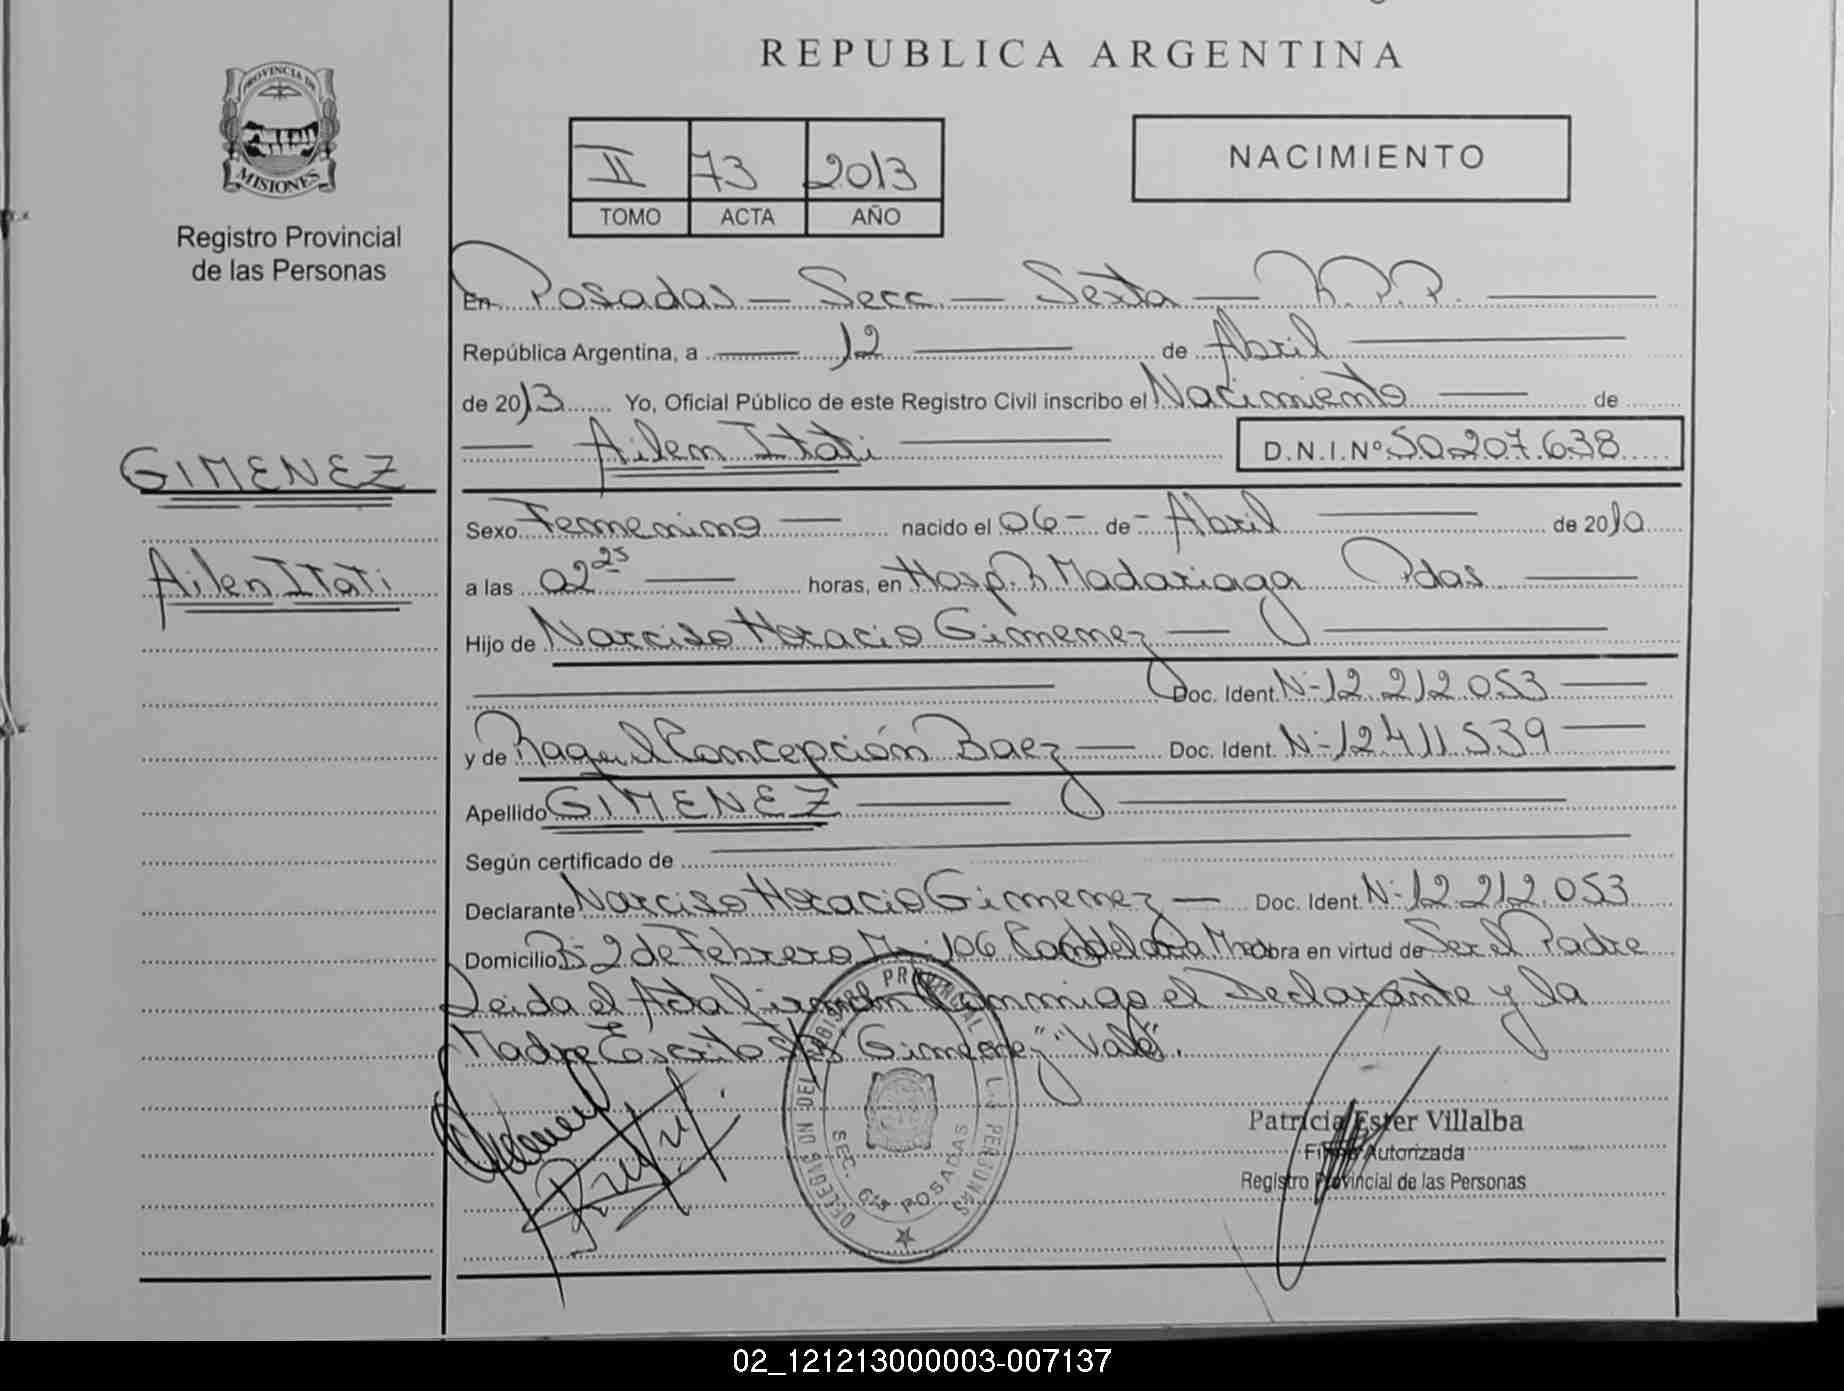 REPUBLICA ARGENTINA
PROVINCIA DE
MISIONES
Registro Provincial
de las Personas
II 73 2013
TOMO ACTA AÑO
NACIMIENTO
En Posadas — Secc — Sexta — R.P.P. —
República Argentina, a — 12 — de Abril —
de 2013 Yo, Oficial Público de este Registro Civil inscribo el Nacimiento — de
— Ailen Itati — D.N.I.Nº 50.207.638
GIMENEZ
Ailen Itati
Sexo Femenino — nacido el 06 - de - Abril — de 2010
a las 02 25 — horas, en Hosp. R. Madariaga Pdas —
Hijo de Narciso Horacio Gimenez —
— Doc. Ident. Nº 12.212.053 —
y de Raquel Concepción Baez — Doc. Ident. Nº 12411.539 —
Apellido GIMENEZ —
Según certificado de —
Declarante Narciso Horacio Gimenez — Doc. Ident. Nº 12.212.053
Domicilio Bº 2 de Febrero Mz: 106 Candelaria Mnes obra en virtud de Ser el Padre
Leida el Acta firman Conmigo el Declarante y la
Madre Escrito Gimenez "Vale".
DELEGACION DEL REGISTRO PROVINCIAL DE LAS PERSONAS
SEC. 6ta POSADAS
Patricia Ester Villalba
Firma Autorizada
Registro Provincial de las Personas
02_121213000003-007137